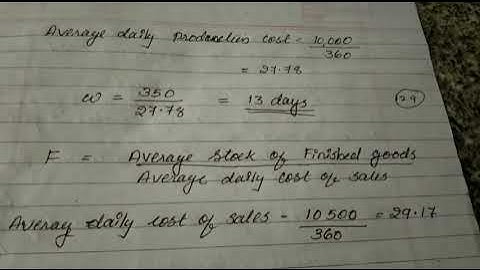 Average daily production cost = 10,000 / 360
= 27.78
W = 350 / 27.78 = 13 days
29
F = Average stock of Finished goods / Average daily cost of sales
Average daily cost of sales = 10500 / 360 = 29.17